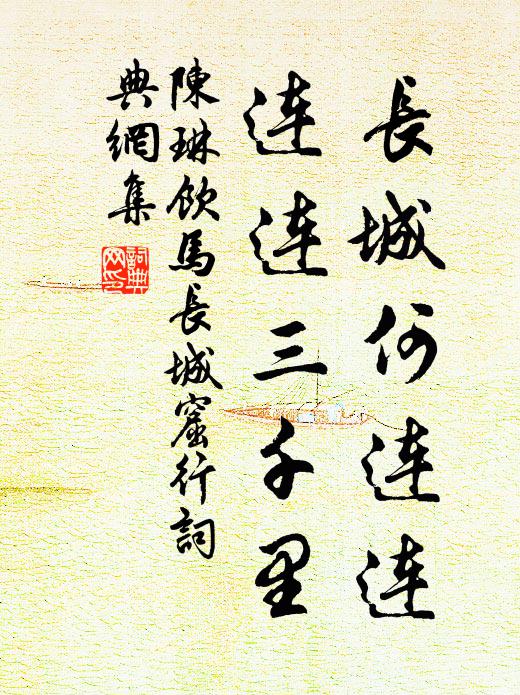 長城何連連
連連三千里
陳琳飲馬長城窟行詞
典網集
詞典
网印